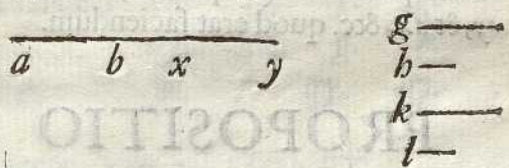 a b x y
g
h
k
l